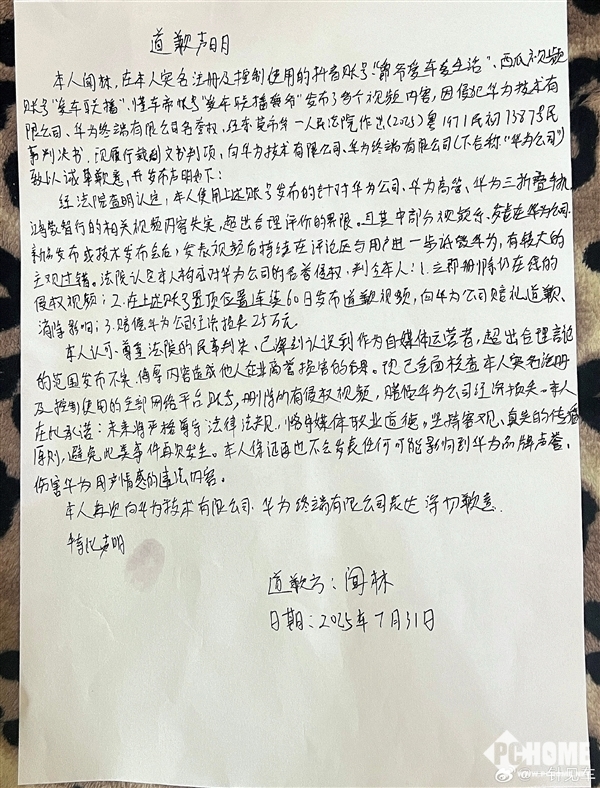 道歉声明
本人闻林,在本人实名注册及控制使用的抖音账号"爱车爱生活"、西瓜视频
账号"爱车联播"、懂车帝账号"爱车联播"发布了多个视频内容,因侵犯华为技术有
限公司、华为终端有限公司名誉权,经东莞市第一人民法院作出(2025)粤1971民初13875民
事判决书,现履行裁判文书判项,向华为技术有限公司、华为终端有限公司(下合称"华为公司")
致以诚挚歉意,并发布声明如下:
经法院查明认定,本人使用上述账号发布的针对华为公司、华为高管、华为三折叠手机、
鸿蒙智行的相关视频内容失实,超出合理评价的界限。且其中部分视频系华为公司
新品发布或技术发布会后,发表视频后持续在评论区与用户进一步诋毁华为,有较大的
主观过错。法院认定本人构成对华为公司的名誉侵权,判令本人:1.立即删除仍在线的
侵权视频;2.在上述账号置顶位置连续60日发布道歉视频,向华为公司赔礼道歉、
消除影响;3.赔偿华为公司经济损失25万元。
本人认可、尊重法院的民事判决,已深刻认识到作为自媒体运营者,超出合理言论
的范围发布不实、侮辱内容造成他人企业商誉损害的后果。现已全面核查本人实名注册
及控制使用的全部网络平台账号,删除所有侵权视频,赔偿华为公司经济损失。本人
在此承诺:未来将严格遵守法律法规、恪守媒体职业道德,坚持客观、真实的传播
原则,避免此类事件再次发生。本人保证再也不会发表任何可能影响到华为品牌声誉、
伤害华为用户情感的违法内容。
本人再次向华为技术有限公司、华为终端有限公司表达深切歉意。
特此声明
道歉方:闻林
日期:2025年7月31日
PCHOME
WWW.PCHOME.NET